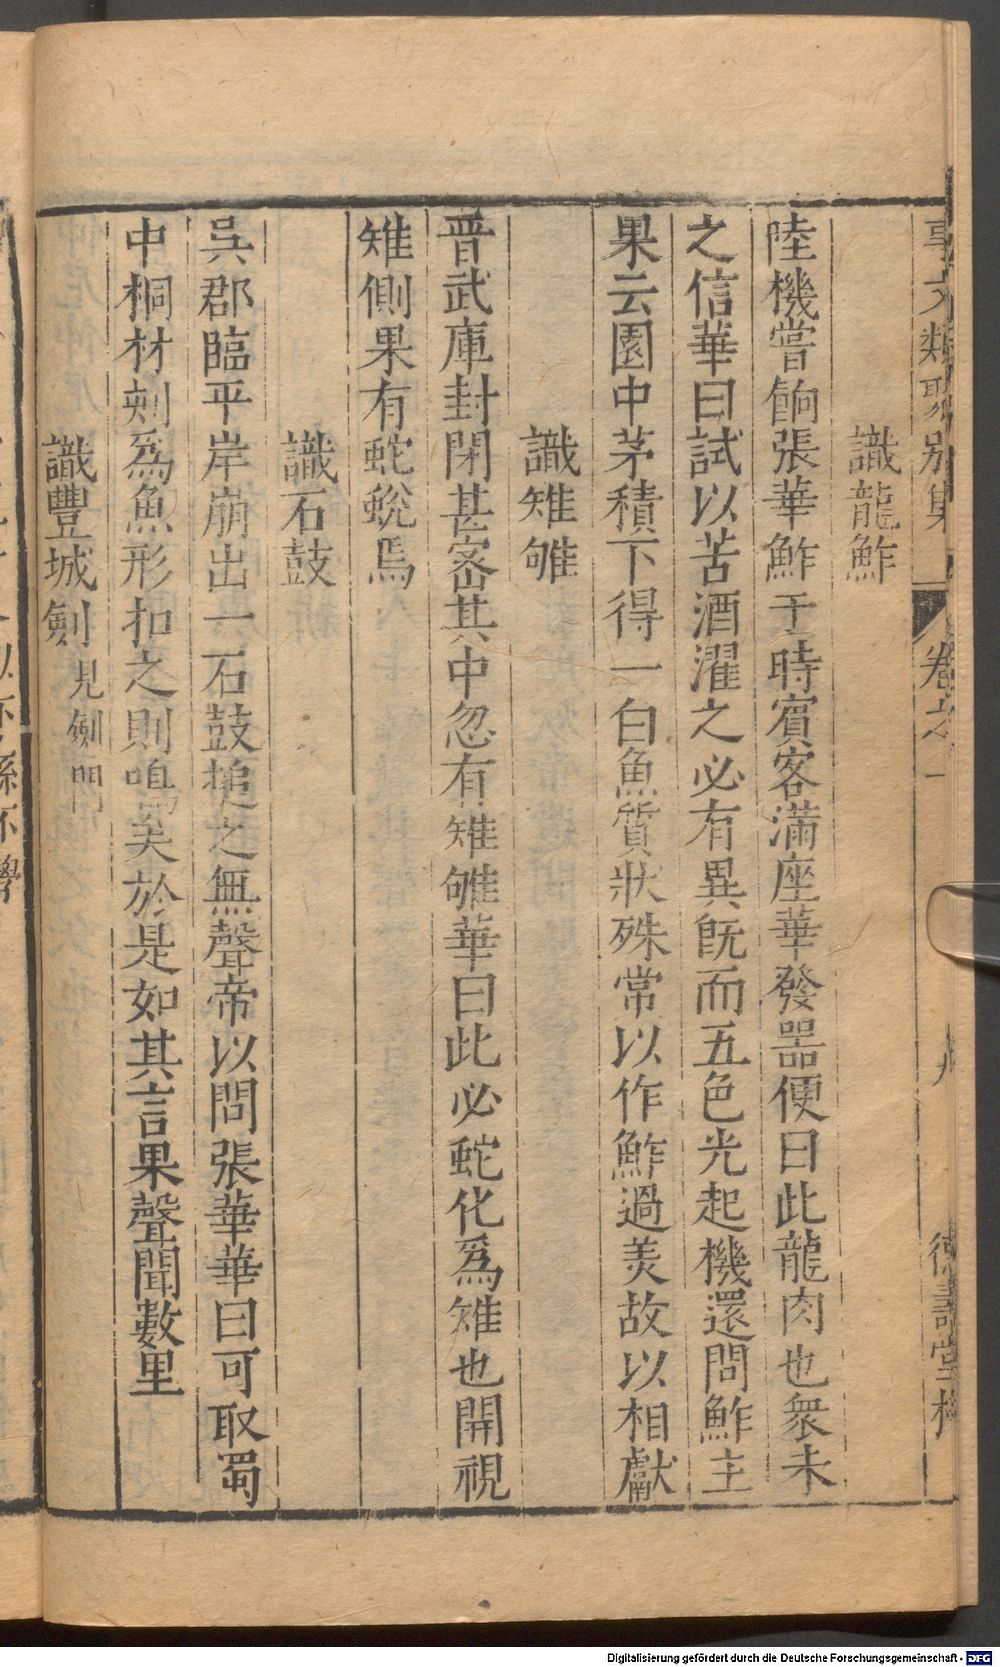 事文類聚別集
卷之一
九
德壽堂梓
識龍鮓
陸機嘗餉張華鮓于時賓客滿座華發器便曰此龍肉也衆未
之信華曰試以苦酒濯之必有異旣而五色光起機還問鮓主
果云園中茅積下得一白魚質狀殊常以作鮓過美故以相獻
識雉雊
晉武庫封閉甚密其中忽有雉雊華曰此必蛇化爲雉也開視
雉側果有蛇蛻焉
識石鼓
吳郡臨平岸崩出一石鼓搥之無聲帝以問張華華曰可取蜀
中桐材刻爲魚形扣之則鳴矣於是如其言果聲聞數里
識豐城劍 見劍門
Digitalisierung gefördert durch die Deutsche Forschungsgemeinschaft - DFG